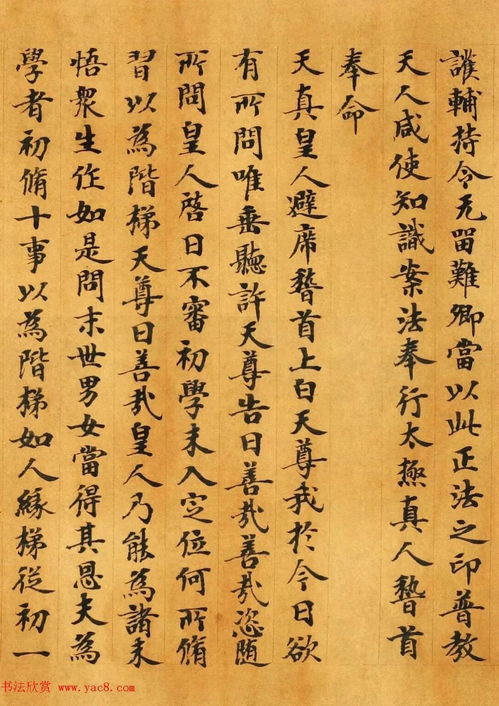 護輔持令无留難卿當以此正法之印普教
天人咸使知識案法奉行太極真人稽首
奉命
天真皇人避席稽首上白天尊我於今日欲
有所問唯垂聽許天尊告曰善哉善哉恣随
所問皇人啓曰不審初學未入定位何所脩
習以為階梯天尊曰善哉皇人乃能為諸未
悟衆生作如是問末世男女當得其恩夫為
學者初脩十事以為階梯如人緣梯從初一
书法欣赏 www.yac8.com